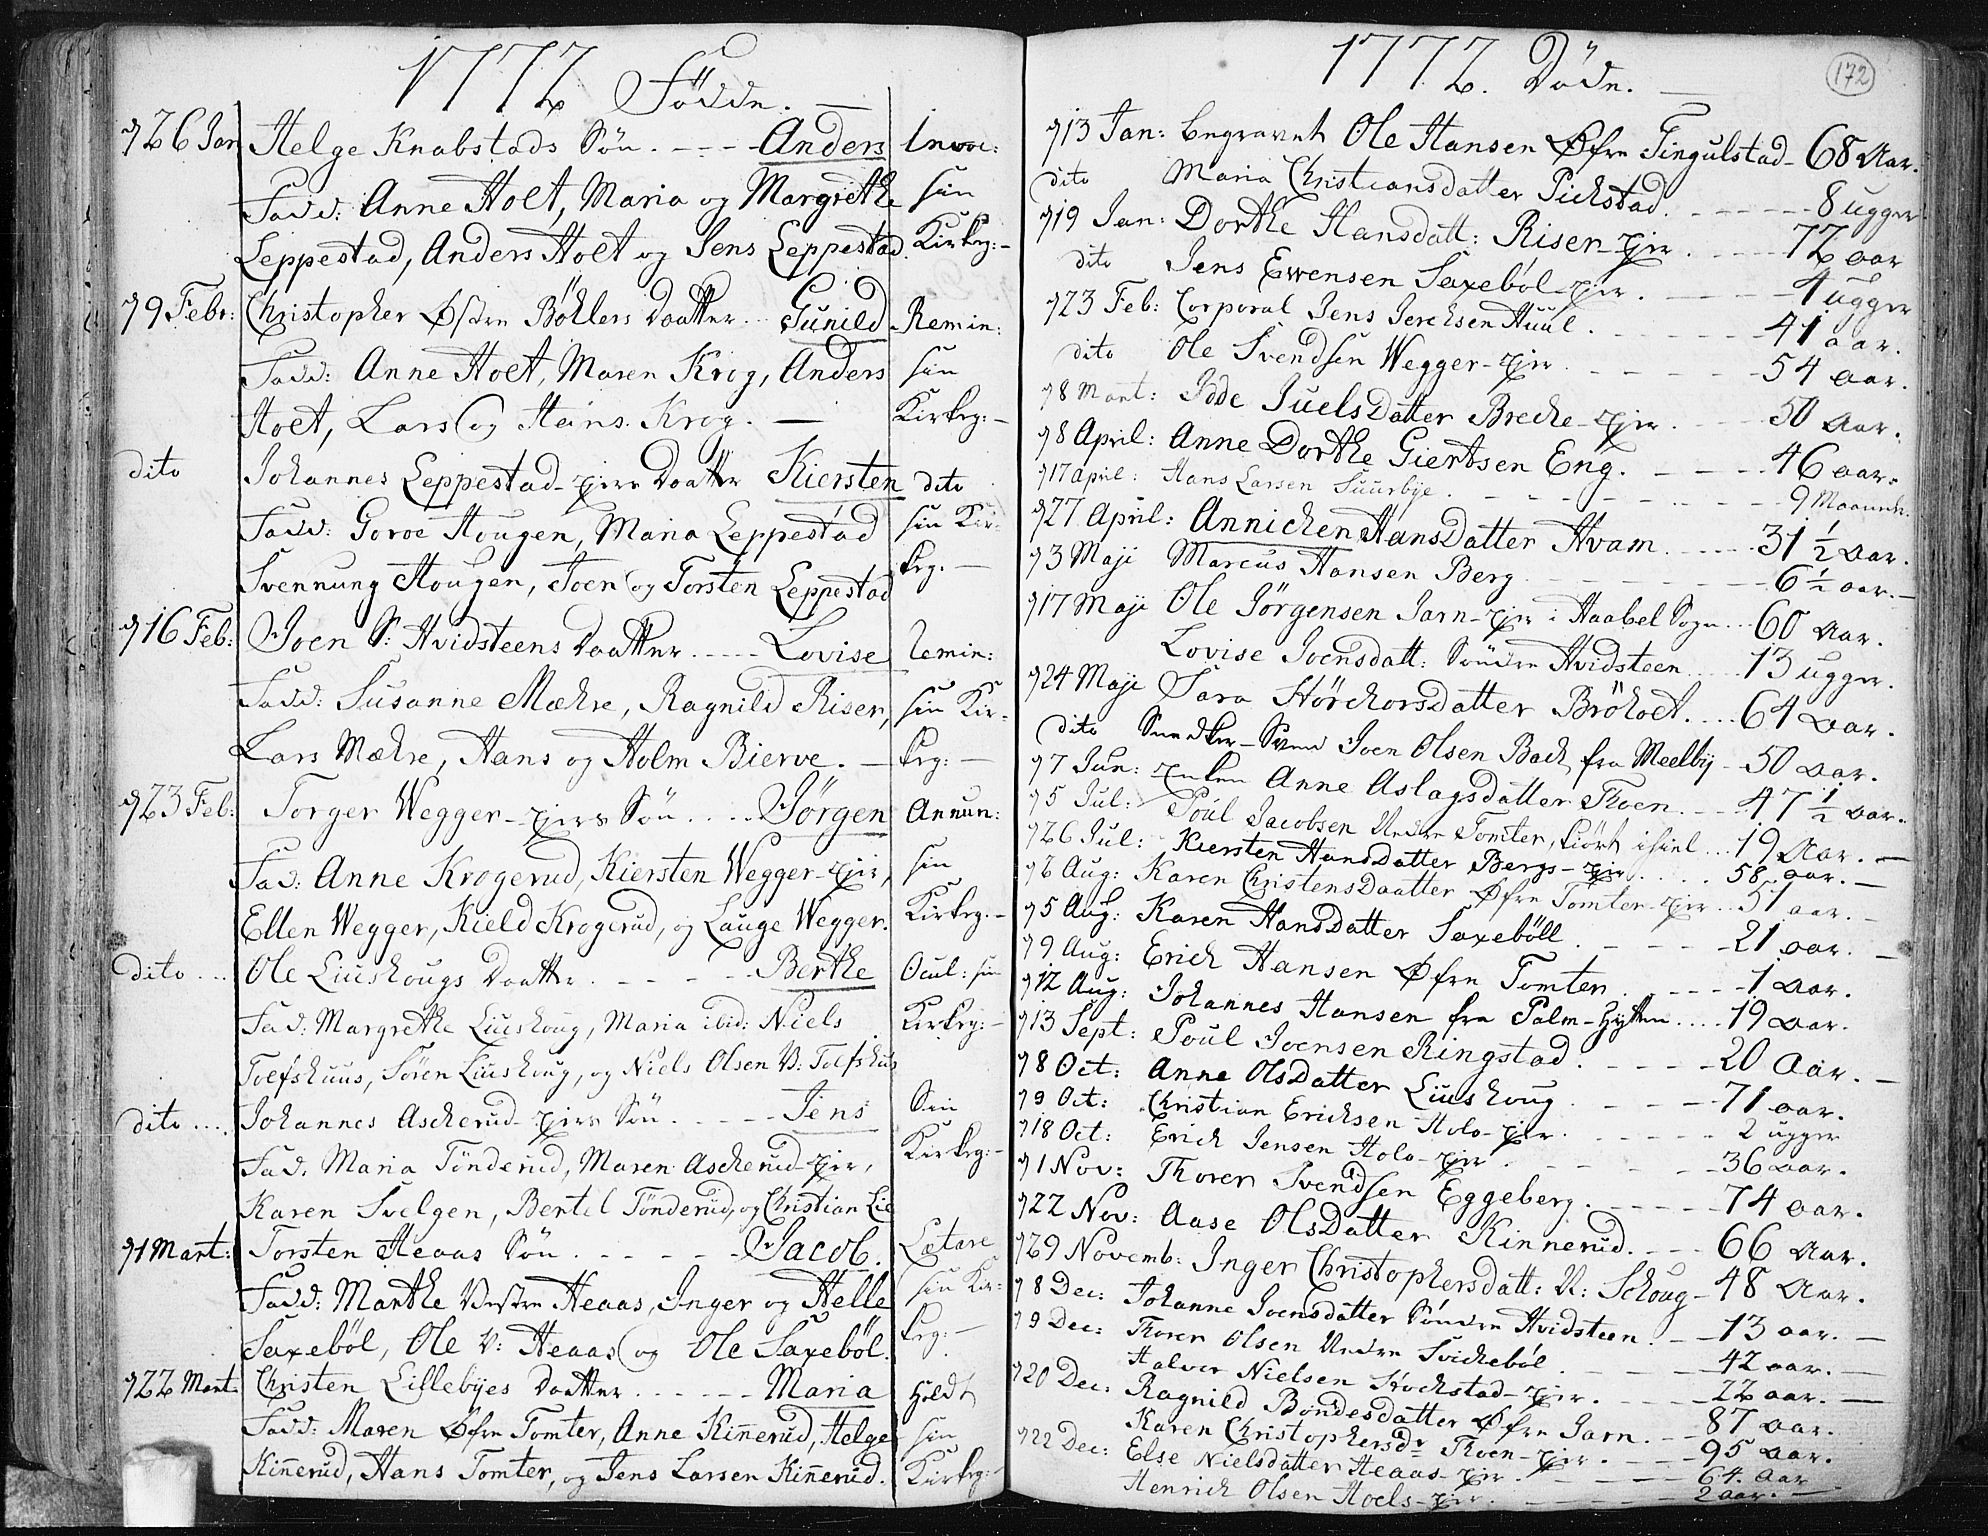 1772 Födde.
926 Jan Helge Knabstads Sön. - - - - Anders Invoc:
Fadd: Anne Holt, Maria og Margrethe sin
Leppestad, Anders Holt og Jens Leppestad. Kirkeg: -
79 Febr: Christopher Østre Böhlers Daatter .. Gunild Remin:
Fadd: Anne Holt, Maren Krog, Anders sin
Holt, Lars og Hans Krog. — Kirkeg: -
dito Johannes Leppestad-ejers Daatter Kiersten dito
Fadd: Goroe Hougen, Maria Leppestad sin Kir-
Svennung Hougen, Joen og Torsten Leppestad keg. —
716 Feb: Joen S: Hvidsteens Daatter ..... Lovise Remin:
Fadd: Susanne Mæhre, Ragnild Riser, sin Kir-
Lars Mæhre, Hans og Holm Bierve. — keg: —
723 Feb: Torger Wegger-ejers Sön .... Jörgen Annun:
Fad: Anne Krogerud, Kiersten Wegger-ejer, sin
Ellen Wegger, Kield Krogerud, og Lauge Wegger. Kirkeg. -
dito ... Ole Liuskougs Daatter. - - - Berthe Ocul: sin
Fad: Margrethe Liuskoug, Maria ibid: Niels Kirkeg: -
Toefshuus, Sören Liuskoug, og Niels Olsen V: Tolfshus
dito .... Johannes Ascherud-ejers Sön. - - - Jens Sin
Fad. Maria Tönderud, Maren Ascherud-ejer, Kirkeg: -
Karen Svelgen, Bertel Tönderud, og Christian Lie
71 Mart: Torsten Heaas Sön. - - - - - Jacob. Lætare
Fadd: Marthe Vestre Heaas, Inger og Helle sin Kir-
Saxeböl, Ole V: Heaas og Ole Saxeböl. keg: —
722 Mart: Christen Lillebyes Daatter ...... Maria Holdt
Fadd: Maren Øfre Tomter, Anne Kinnerud, Helge sin
Kinnerud, Hans Tomter, og Jens Larsen Kinnerud. Kirkeg: -
1772. Döde. — 172
713 Jan: begravet Ole Hansen Øfre Tingulstad - 68 Aar.
dito Maria Christiansdatter Pichstad. - - - - 8 ugger
719 Jan: Dorthe Hansdatt: Riser-ejer. - - - 72 aar
dito Jens Evensen Saxeböl-ejer. - - - 4 ugger
723 Feb: Corporal Jens Jerchsen Huul. - - - 41 aar.
dito Ole Svendsen Wegger-ejer. - - - 54 aar.
78 Mart: Idde JuelsDatter Breche-ejer. - - - 50 Aar.
78 April: Anne Dorthe Giertsen Eng. - - - 46 aar.
717 april: Hans Larsen Suurbye. - - - 9 Maaneder.
727 April: Annichen HansDatter Hvam. ..... 31 1/2 aar.
73 Maji Marcus Hansen Berg. - - - 6 1/2 aar. -
717 Maji Ole Jörgensen Jarn-ejer i Haabel Sogn ... 60 Aar.
Lovise Joensdatt: Söndre Hvidsteen .... 13 ugger.
724 Maji Sara HörchorsDatter Bröholt. .... 64 aar.
dito Snedker-Svend Joen Olsen Bach fra Meelby - 50 aar.
77 Jun: Enken Anne Aslagsdatter Thoen. ... 47 1/2 aar.
75 Jul: Poul Jacobsen Nedre Tomter, kiört ihiel ... 19 Aar. —
726 Jul: Kiersten HansDatter Bergs-ejer. .... 58 aar. —
72 Aug: Karen ChristensDaatter Øfre Tomter-ejer .. 51 aar. -
75 Aug: Karen HansDatter Saxeböll. - - - 21 aar. —
79 Aug: Erich Hansen Øfre Tomter. - - - 1 aar.
712 Aug: Johannes Hansen fra Palm-Hytten .... 19 aar.
713 Sept: Poul Joensen Ringstad. - - - 20 Aar. —
78 Oct: Anne OlsDatter Liuskoug. - - - 71 aar.
79 Oct: Christian Erichsen Holo-ejer. - - - 2 ugger
718 Oct: Erich Jensen Holo-ejer. - - - 36 aar.
71 Nov: Thorer Svendsen Eggeberg. - - - 74 aar.
722 Nov: Aase OlsDatter Kinnerud. - - - 66 Aar.
729 Novemb: Inger Christophersdatt: N: Schoug - 48 Aar.
78 Dec: Johanne Joensdatter Söndre Hvidsteen. - - 13 aar. —
79 Dec: Thorer Olsen Nedre Svicheböl - - - 42 aar. —
Halvor Nielsen Stochstad-ejer. - - - 22 aar. —
720 Dec: Ragnild Bondesdatter Øfre Jarn. - - 87 aar.
Karen Christophersdr Thoen-ejer. - - - 95 aar.
722 Dec: Else Nielsdatter Heaas-ejer. - - - 64. Aar
Henrich Olsen Hoels-ejer. - - - 2 aar. —